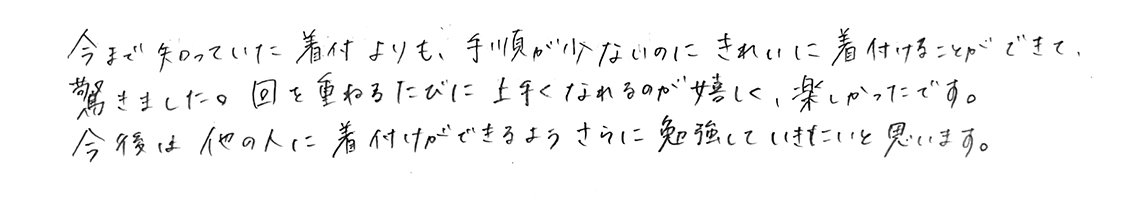 今まで知っていた着付よりも、手順が少ないのにきれいに着付けることができて、
驚きました。回を重ねるたびに上手くなれるのが嬉しく、楽しかったです。
今後は他の人に着付けができるようさらに勉強していきたいと思います。